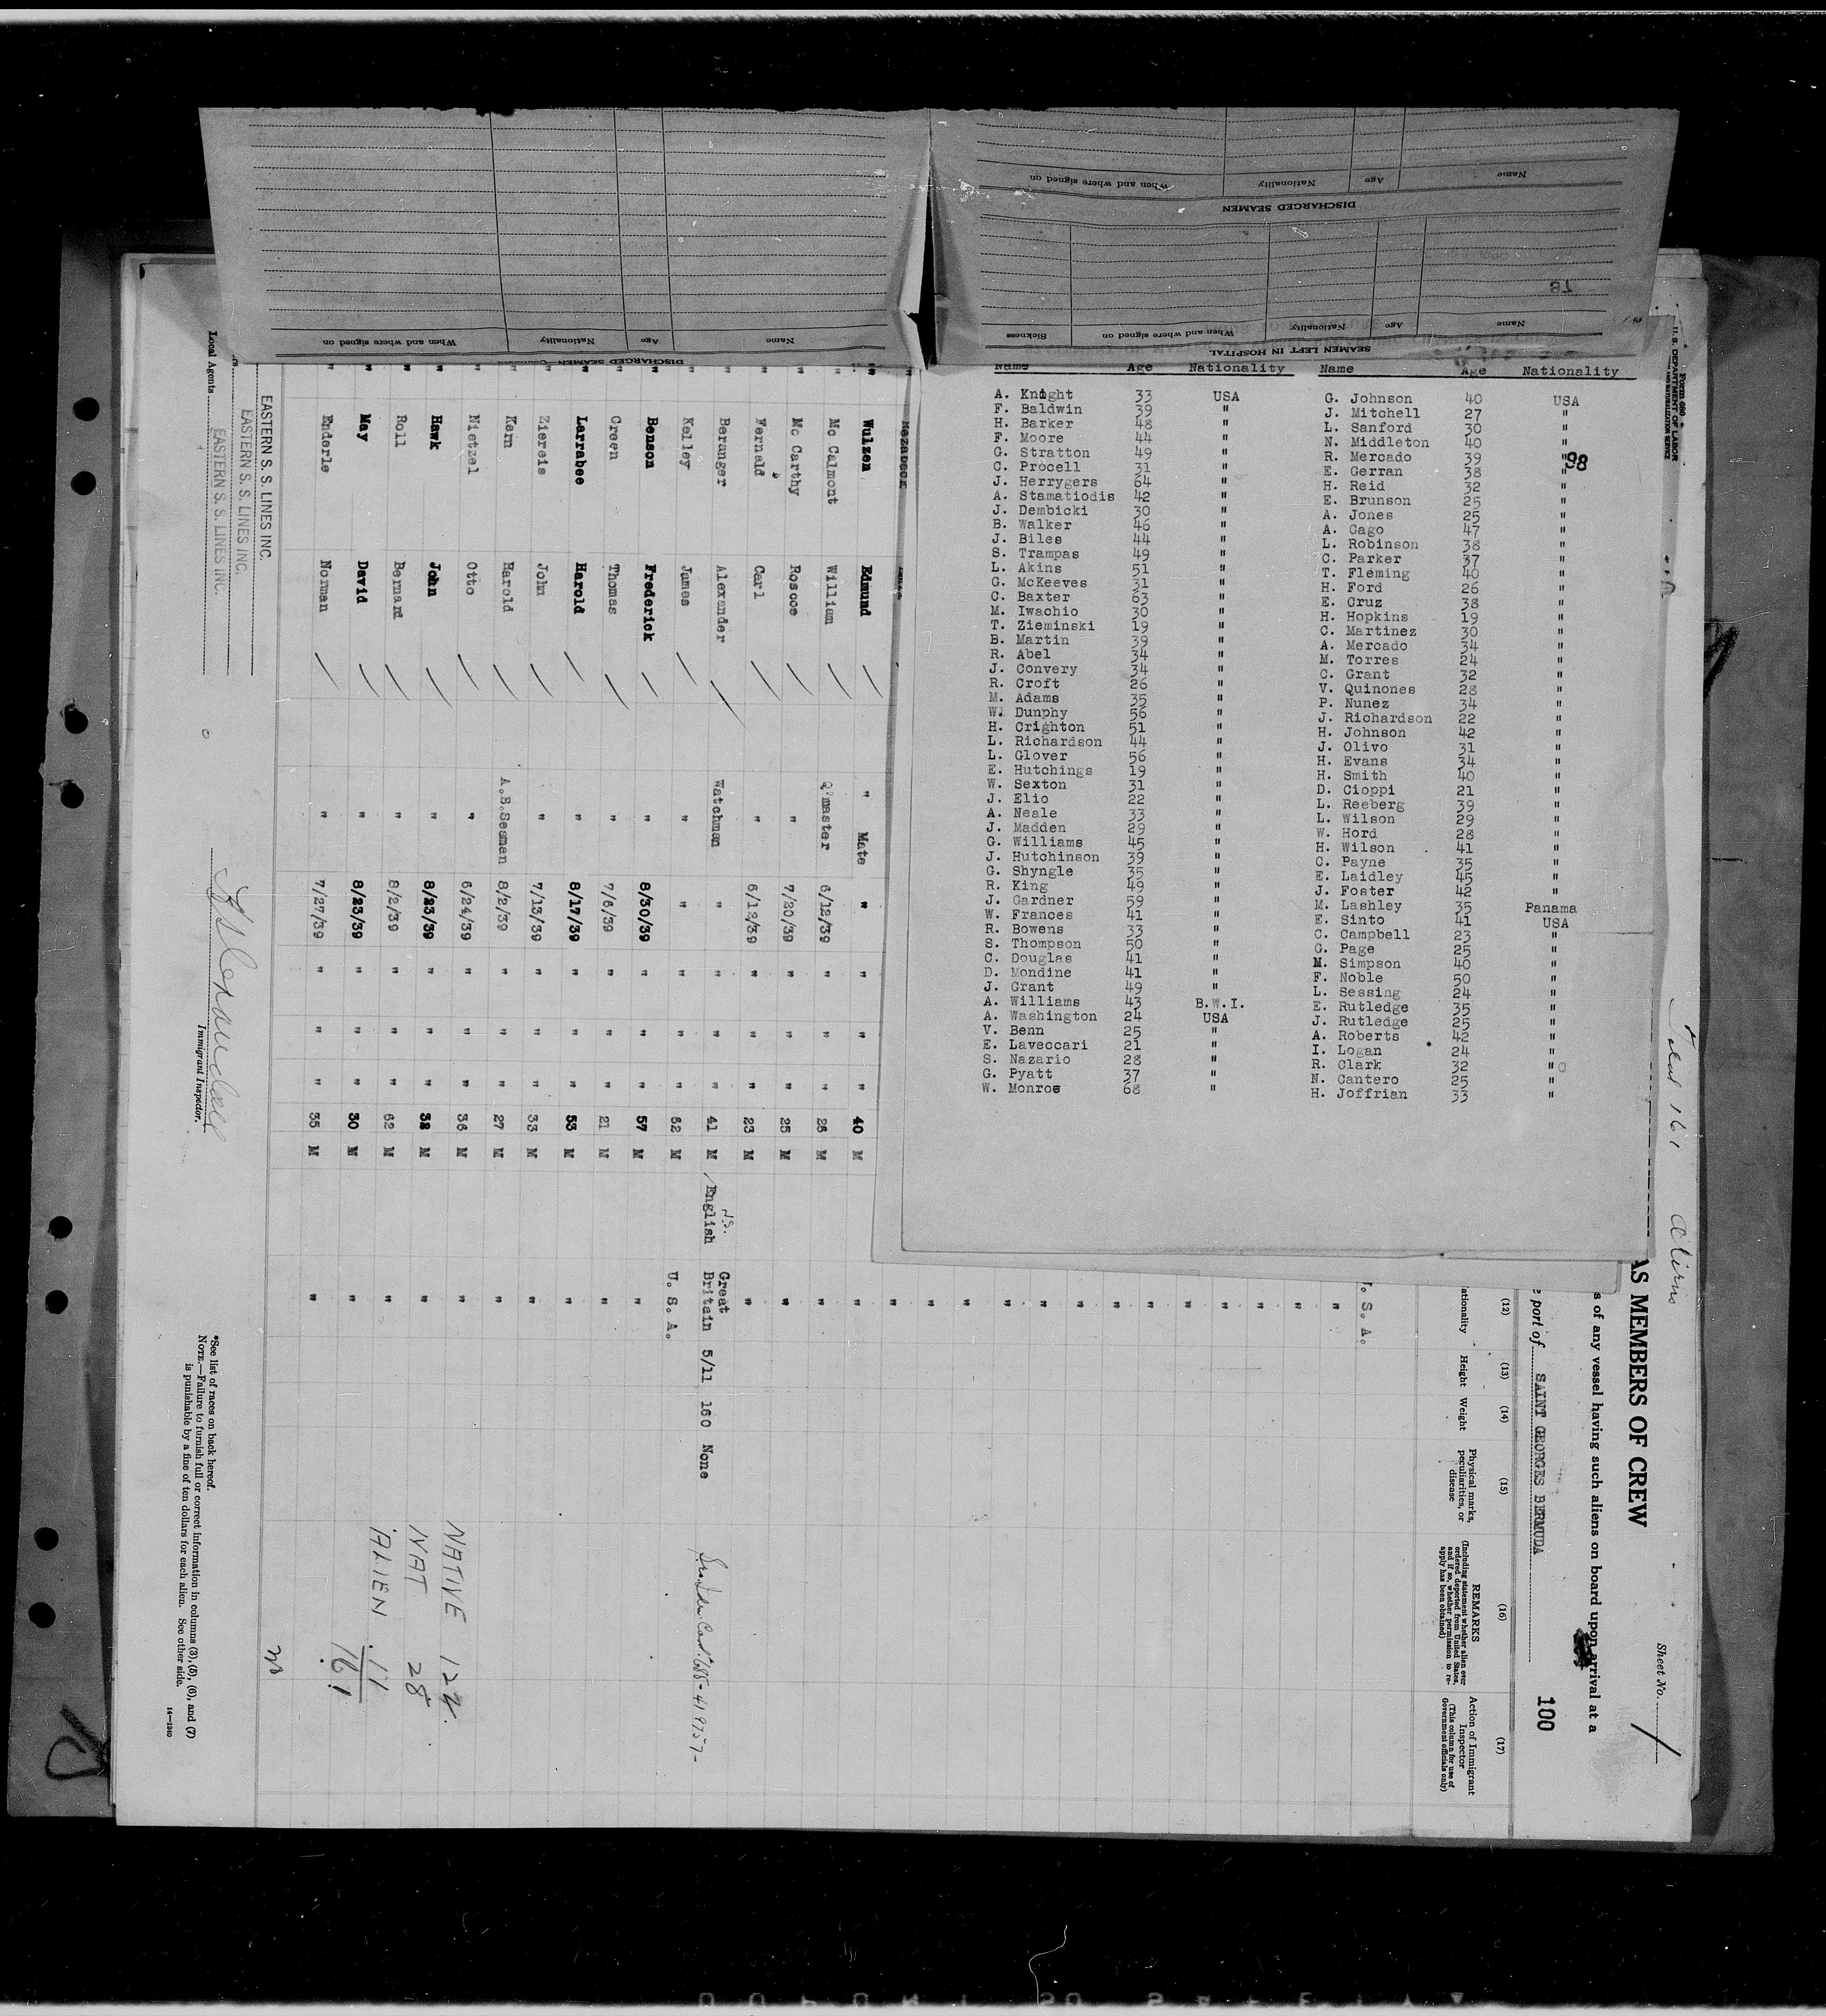 Name Age Nationality Name Age Nationality
A. Knight 33 USA G. Johnson 40 USA
F. Baldwin 39 " J. Mitchell 27 "
H. Barker 48 " L. Sanford 30 "
F. Moore 44 " N. Middleton 40 "
G. Stratton 49 " R. Mercado 39 "
C. Procell 31 " E. Gerran 38 " 98
J. Herrygers 64 " H. Reid 32 "
A. Stamatiodis 42 " E. Brunson 25 "
J. Dembicki 30 " A. Jones 25 "
B. Walker 46 " A. Cago 47 "
J. Biles 44 " L. Robinson 38 "
S. Trampas 49 " C. Parker 37 "
L. Akins 51 " T. Fleming 40 "
G. McKeeves 31 " H. Ford 26 "
C. Baxter 63 " E. Cruz 38 "
M. Iwachio 30 " H. Hopkins 19 "
T. Zieminski 19 " C. Martinez 30 "
B. Martin 39 " A. Mercado 34 "
R. Abel 34 " M. Torres 24 "
J. Convery 34 " C. Grant 32 "
R. Croft 26 " V. Quinones 28 "
M. Adams 35 " P. Nunez 34 "
W. Dunphy 56 " J. Richardson 22 "
H. Crighton 51 " H. Johnson 42 "
L. Richardson 44 " J. Olivo 31 "
L. Glover 56 " H. Evans 34 "
E. Hutchings 19 " H. Smith 40 "
W. Sexton 31 " D. Cioppi 21 "
J. Elio 22 " L. Reeberg 39 "
A. Neale 33 " L. Wilson 29 "
J. Madden 29 " W. Hord 28 "
G. Williams 45 " H. Wilson 41 "
J. Hutchinson 39 " C. Payne 35 "
G. Shyngle 35 " E. Laidley 45 "
R. King 49 " J. Foster 42 "
J. Gardner 59 " M. Lashley 35 Panama
W. Frances 41 " E. Sinto 41 USA
R. Bowens 33 " C. Campbell 23 "
S. Thompson 50 " G. Page 25 "
C. Douglas 41 " M. Simpson 40 "
D. Mondine 41 " F. Noble 50 "
J. Grant 49 " L. Sessing 24 "
A. Williams 43 B.W.I. E. Rutledge 35 "
A. Washington 24 USA J. Rutledge 25 "
V. Benn 25 " A. Roberts 42 "
E. Laveccari 21 " I. Logan 24 "
S. Nazario 28 " R. Clark 32 "
G. Pyatt 37 " N. Cantero 25 "
W. Monroe 68 " H. Joffrian 33 "
DISCHARGED SEAMEN
Name Age Nationality When and where signed on
SEAMEN LEFT IN HOSPITAL
Name Age Nationality When and where signed on Sickness
18
DISCHARGED SEAMEN
Name Age Nationality When and where signed on
Form 680
U. S. DEPARTMENT OF LABOR
Total 161 Aliens
Sheet No. 1
AS MEMBERS OF CREW
s of any vessel having such aliens on board upon arrival at a
port of SAINT GEORGES BERMUDA 100
(12) (13) (14) (15) (16) (17)
Height Weight Physical marks, peculiarities, or disease
REMARKS
(Including statement whether alien ever ordered deported from United States, and if so, whether permission to reapply has been obtained)
Action of Immigrant Inspector
(This column for use of Government officials only)
Wulzen Edmund " Mate " " " " 40 M "
Mc Calmont William Q'master 6/12/39 " " " 26 M "
Mc Carthy Roscoe " 7/20/39 " " " 25 M "
Fernald Carl " 6/12/39 " " " 23 M "
Beranger Alexander Watchman " " " " 41 M English Great Britain 5/11 160 None
Kelley James " " " " " 52 M U. S. A.
Benson Frederick " 8/30/39 " " " 57 M "
Green Thomas " 7/6/39 " " " 21 M "
Larrabee Harold " 8/17/39 " " " 53 M "
Ziereis John " 7/13/39 " " " 33 M "
Kern Harold A.B.Seaman 8/2/39 " " " 27 M "
Nietzel Otto " 6/24/39 " " " 36 M "
Hawk John " 8/23/39 " " " 32 M "
Roll Bernard " 8/2/39 " " " 62 M "
May David " 8/23/39 " " " 30 M "
Enderle Norman " 7/27/39 " " " 35 M "
NATIVE 122
NAT 28
ALIEN 11
161
EASTERN S. S. LINES INC.
EASTERN S. S. LINES INC.
Local Agents EASTERN S. S. LINES INC.
Immigrant Inspector.
*See list of races on back hereof.
NOTE.—Failure to furnish full or correct information in columns (3), (5), (6), and (7)
is punishable by a fine of ten dollars for each alien. See other side.
14—1240